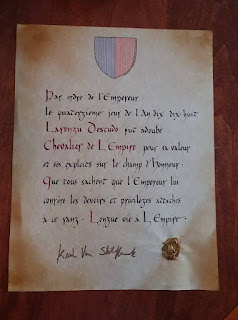 Par ordre de l'Empereur
Le quatorzieme jour de l'An dix dix-huit
Larenzu Descudo fut adoubé
Chevalier de L'Empire pour sa valeur
et ses exploits sur le champ d'Honneur.
Que tous sachent que l'Empereur lui
confère les devoirs et privilèges attachés
à ce rang. Longue vie à L'Empire.
Karl Von